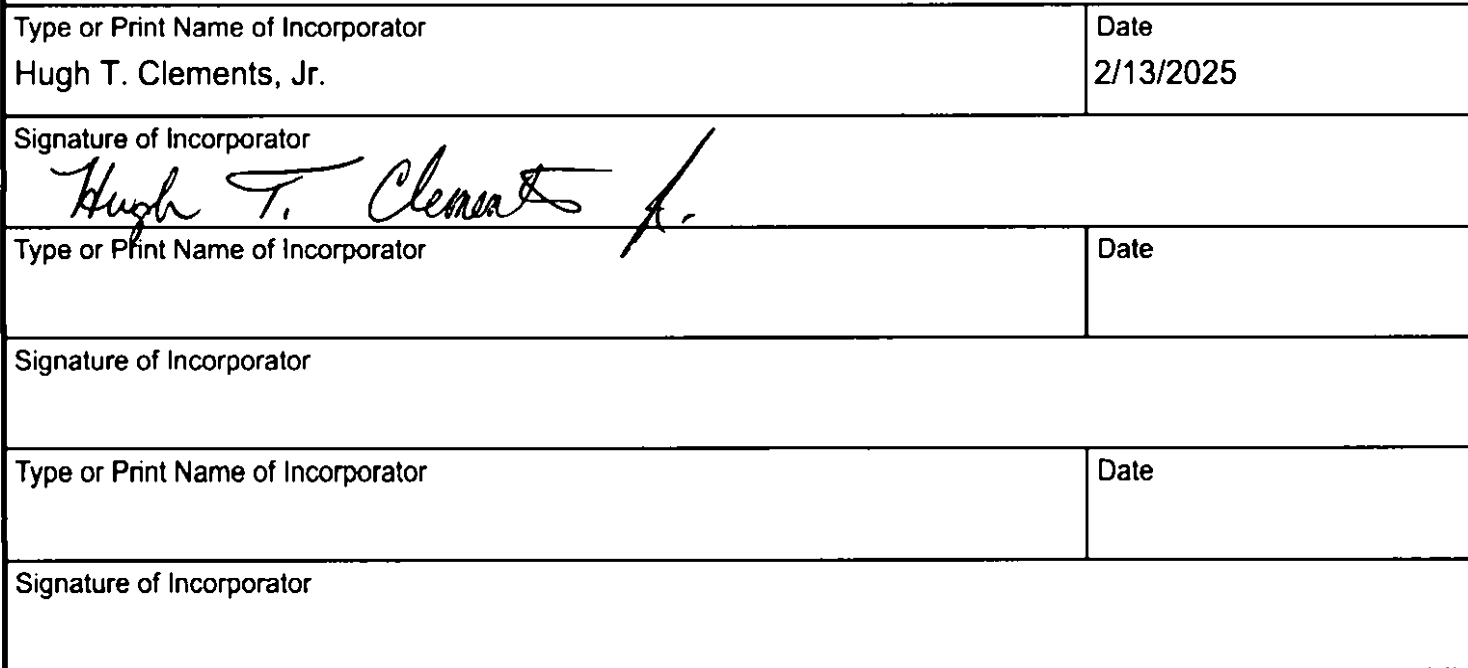 Type or Print Name of Incorporator
Date
Hugh T. Clements, Jr.
2/13/2025
Signature of Incorporator
Hugh T. Clements Jr.
Type or Print Name of Incorporator
Date
Signature of Incorporator
Type or Print Name of Incorporator
Date
Signature of Incorporator